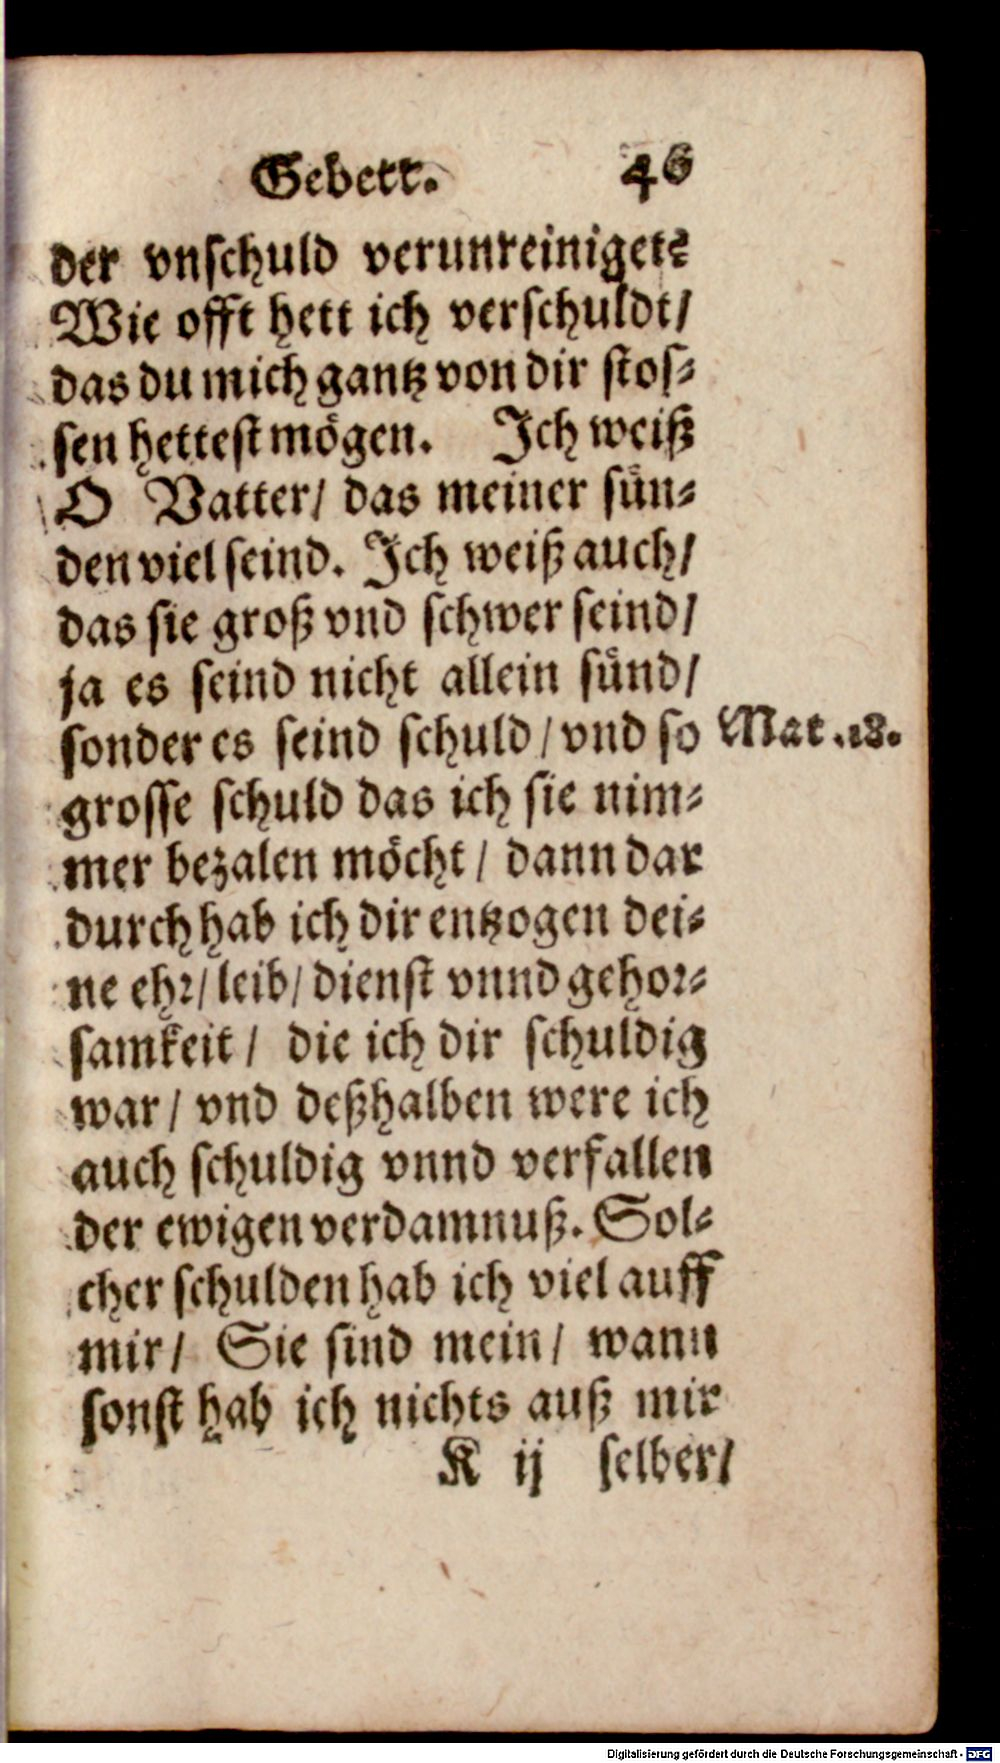 Gebett. 46
der vnschuld verunreiniget?
Wie offt hett ich verschuldt/
das du mich gantz von dir stos-
sen hettest mögen. Ich weiß
O Vatter/ das meiner sün-
den viel seind. Ich weiß auch/
das sie groß vnd schwer seind/
ja es seind nicht allein sünd/
sonder es seind schuld/ vnd so Mat. 18.
grosse schuld das ich sie nim-
mer bezalen möcht/ dann dar
durch hab ich dir entzogen dei-
ne ehr/ leib/ dienst vnnd gehor-
samkeit/ die ich dir schuldig
war/ vnd deßhalben were ich
auch schuldig vnnd verfallen
der ewigen verdamnuß. Sol-
cher schulden hab ich viel auff
mir/ Sie sind mein/ wann
sonst hab ich nichts auß mir
K ij selber/
Digitalisierung gefördert durch die Deutsche Forschungsgemeinschaft - DFG